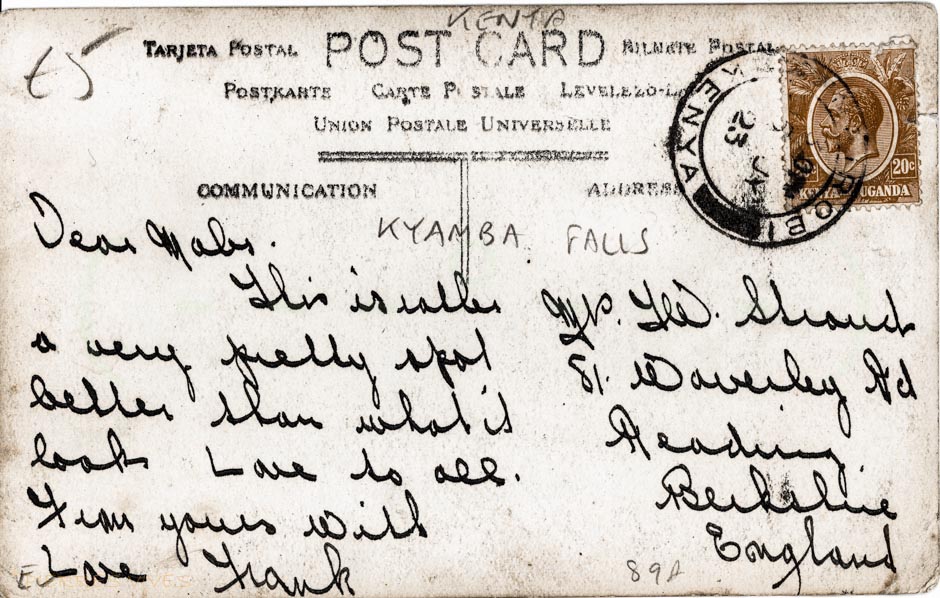 KENYA
£5
TARJETA POSTAL POST CARD BILHETE POSTAL
POSTKARTE CARTE POSTALE LEVELEZO-LA
UNION POSTALE UNIVERSELLE
COMMUNICATION ADDRESS
NAIROBI KENYA
23
20c
KENYA UGANDA
KYAMBA FALLS
Dear Mabs.
This is rather
a very pretty spot
better than what it
look Love to all.
From yours with
Love Frank
Mr. F.W. Strout
81. Waverley Rd
Reading
Berkshire
England
89A